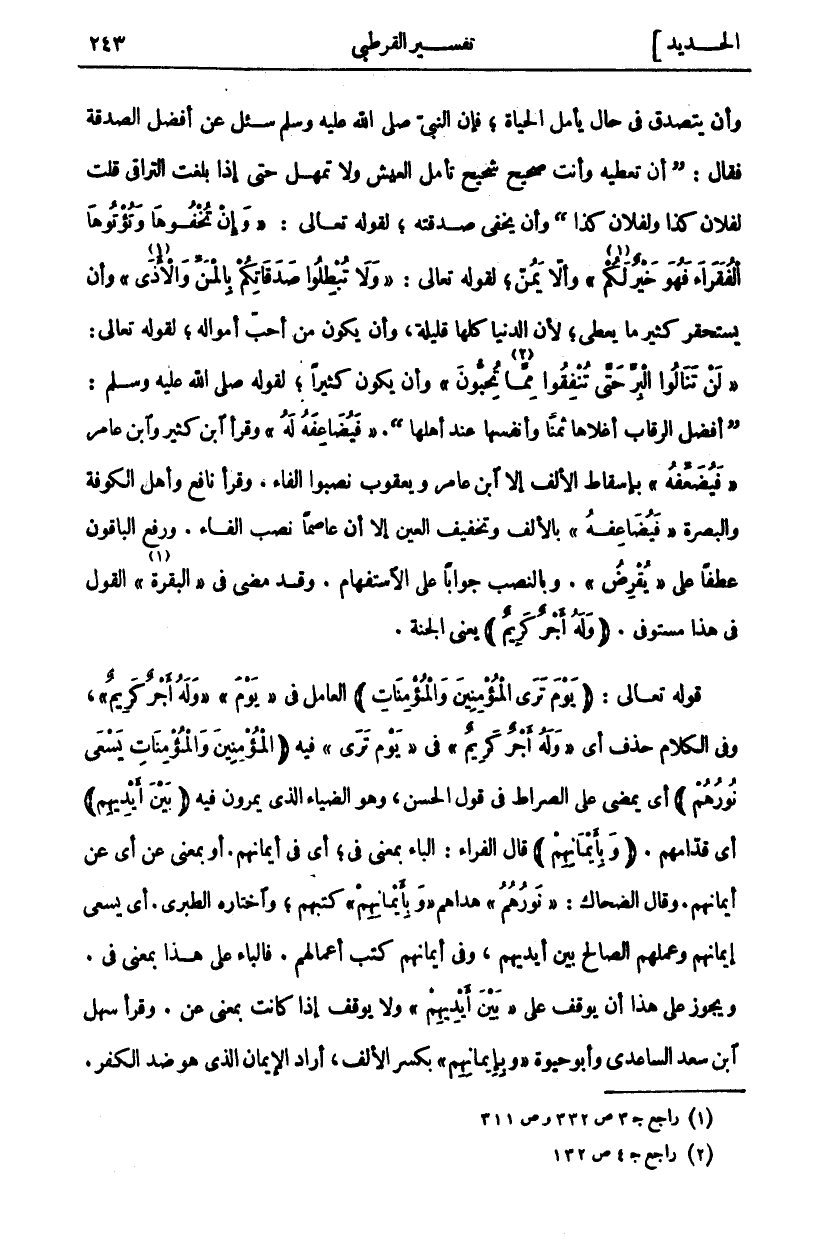 الحـــديد ] تفســـير القرطبي ٢٤٣
وأن يتصدق فى حال يأمل الحياة ؛ فإن النبيّ صلى الله عليه وسلم سـئل عن أفضل الصدقة
فقال : ” أن تعطيه وأنت صحيح شحيح تأمل العيش ولا تمهـل حتى إذا بلغت التراقى قلت
لفلان كذا ولفلان كذا “ وأن يخفى صـدقته ؛ لقوله تعـالى : « وَإِنْ تُخْفُـوهَا وَتُؤْتُوهَا
الْفُقَرَاءَ فَهُوَ خَيْرٌ لَكُمْ (١) » وألّا يَمُنّ ؛ لقوله تعالى : « وَلَا تُبْطِلُوا صَدَقَاتِكُمْ بِالْمَنِّ وَالْأَذَى (١) » وأن
يستحقر كثير ما يعطى ؛ لأن الدنيا كلها قليلة ، وأن يكون من أحبّ أمواله ؛ لقوله تعالى :
« لَنْ تَنَالُوا الْبِرَّ حَتَّى تُنْفِقُوا مِمَّا تُحِبُّونَ (٢) » وأن يكون كثيراً ؛ لقوله صلى الله عليه وسـلم :
” أفضل الرقاب أغلاها ثمنًا وأنفسها عند أهلها “ . « فَيُضَاعِفَهُ لَهُ » وقرأ ٱبن كثير وٱبن عامر
« فَيُضَعِّفَهُ » بإسقاط الألف إلا ٱبن عامر ويعقوب نصبوا الفاء . وقرأ نافع وأهل الكوفة
والبصرة « فَيُضَاعِفـهُ » بالألف وتخفيف العين إلا أن عاصمًا نصب الفـاء . ورفع الباقون
عطفًا على « يُقْرِضُ » . وبالنصب جوابًا على الٱستفهام . وقـد مضى فى « البقرة (١) » القول
فى هذا مستوفى . ( وَلَهُ أَجْرٌ كَرِيمٌ ) يعنى الجنة .
قوله تعـالى : ( يَوْمَ تَرَى الْمُؤْمِنِينَ وَالْمُؤْمِنَاتِ ) العامل فى « يَوْمَ » «وَلَهُ أَجْرٌ كَرِيمٌ» ،
وفى الكلام حذف أى « وَلَهُ أَجْرٌ كَرِيمٌ » فى « يَوْم تَرَى » فيه ( الْمُؤْمِنِينَ وَالْمُؤْمِنَاتِ يَسْعَى
نُورُهُمْ ) أى يمضى على الصراط فى قول الحسن ، وهو الضياء الذى يمرون فيه ( بَيْنَ أَيْدِيهِم )
أى قدّامهم . ( وَبِأَيْمَانِهِمْ ) قال الفراء : الباء بمعنى فى ؛ أى فى أيمانهم . أو بمعنى عن أى عن
أيمانهم . وقال الضحاك : « نُورُهُمْ » هداهم «وَبِأَيْمَانِهِمْ» كتبهم ؛ وٱختاره الطبرى . أى يسعى
إيمانهم وعملهم الصالح بين أيديهم ، وفى أيمانهم كتب أعمالهم . فالباء على هـذا بمعنى فى .
ويجوز على هذا أن يوقف على « بَيْنَ أَيْدِيهِمْ » ولا يوقف إذا كانت بمعنى عن . وقرأ سهل
ٱبن سعد الساعدى وأبو حيوة «وبِإِيمانِهِم» بكسر الألف ، أراد الإيمان الذى هو ضد الكفر .
(١) راجع جـ ٣ ص ٣٣٢ و ص ٣١١
(٢) راجع جـ ٤ ص ١٣٢